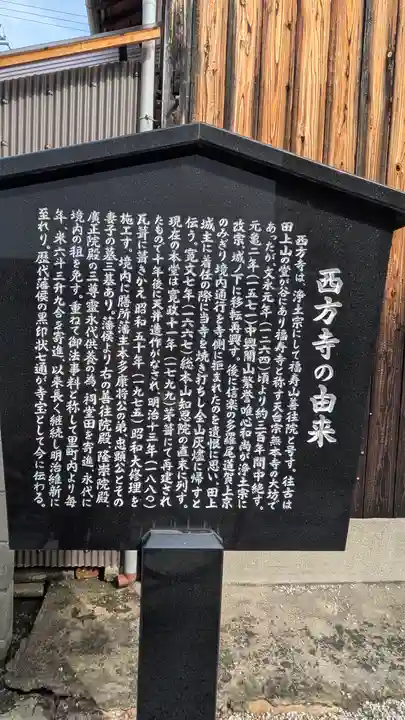 西方寺の由来
西方寺は、浄土宗にして福寿山善往院と号す。往古は
田上山の堂が谷にあり福寿寺と称す天台宗無本寺の大坊で
あったが、文永元年(一二六四)頃より約三百年間中絶す。
元亀二年(一五七一)中興開山繁誉唯心和尚が浄土宗に
改宗、城ノ下に移転再興す。後に信楽の多羅尾道賀上京
のみぎり、境内通行を寺側に拒まれたのを遺恨に思い、田上
城主に着任の際に当寺を焼き打ちし全山灰燼に帰すと
伝う、寛文七年(一六六七)総本山知恩院の直末に列す。
現在の本堂は、寛政十一年(一七九九)茅葺にて再建され
たもので十年後に天井造作がなされ、明治十三年(一八八〇)
瓦葺に葺きかえ昭和五十年(一九七五)昭和大修理を
施工す。境内に膳所藩主本多康将公の弟、忠顕公とその
妻子の墓三基あり。藩侯より右の善往院殿、隆崇院殿
廣正院殿の三尊霊永代供養の為、祠堂田を寄進、永代に
境内の租を免ず。重ねて御法事料と称して里町内より毎
年、米六斗三升九合を寄進、以来長く継続し明治維新に
至れり。歴代藩侯の黒印状七通が寺宝として今に伝わる。